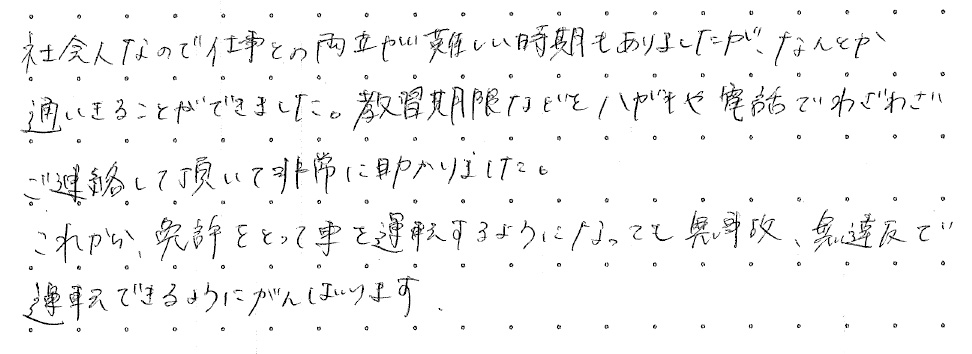 社会人なので仕事との両立が難しい時期もありましたが、なんとか
通いきることができました。教習期限などをハガキや電話でわざわざ
ご連絡して頂いて非常に助かりました。
これから、免許をとって車を運転するようになっても無事故、無違反で
運転できるようにがんばります.